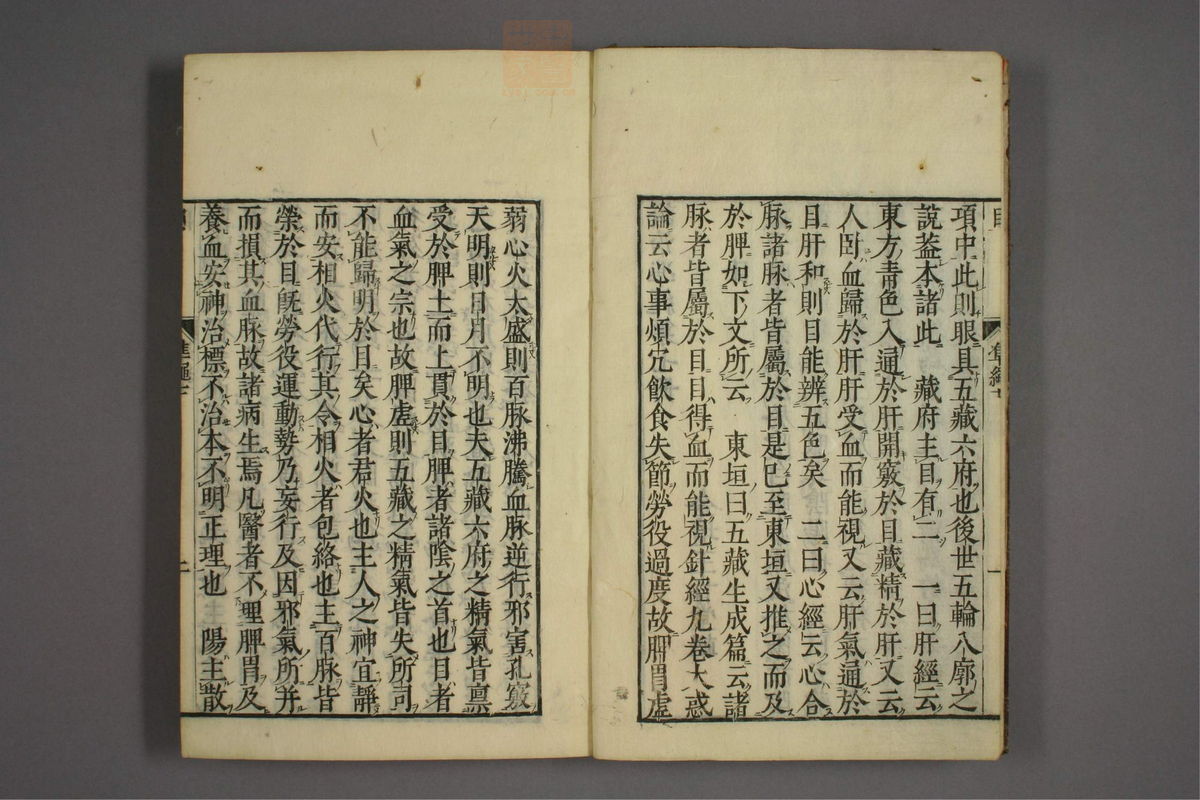 項中此則眼具五藏六府也後世五輪八廓之
說蓋本諸此　藏府主目有二　一曰肝經云
東方青色入通於肝開竅於目藏精於肝又云
人臥血歸於肝肝受血而能視又云肝氣通於
目肝和則目能辨五色矣　二曰心經云心合
脉諸脉者皆屬於目是已至東垣又推之而及
於脾如下文所云　東垣曰五藏生成篇云諸
脉者皆屬於目目得血而能視針經九卷大惑
論云心事煩冗飲食失節勞役過度故脾胃虛
弱心火太盛則百脉沸騰血脉逆行邪害孔竅
天明則日月不明也夫五藏六府之精氣皆禀
受於脾土而上貫於目脾者諸陰之首也目者
血氣之宗也故脾虛則五藏之精氣皆失所司
不能歸明於目矣心者君火也主人之神宜靜
而安相火代行其令相火者包絡也主百脉皆
榮於目旣勞役運動勢乃妄行及因邪氣所并
而損其血脉故諸病生焉凡醫者不理脾胃及
養血安神治標不治本不明正理也　陽主散